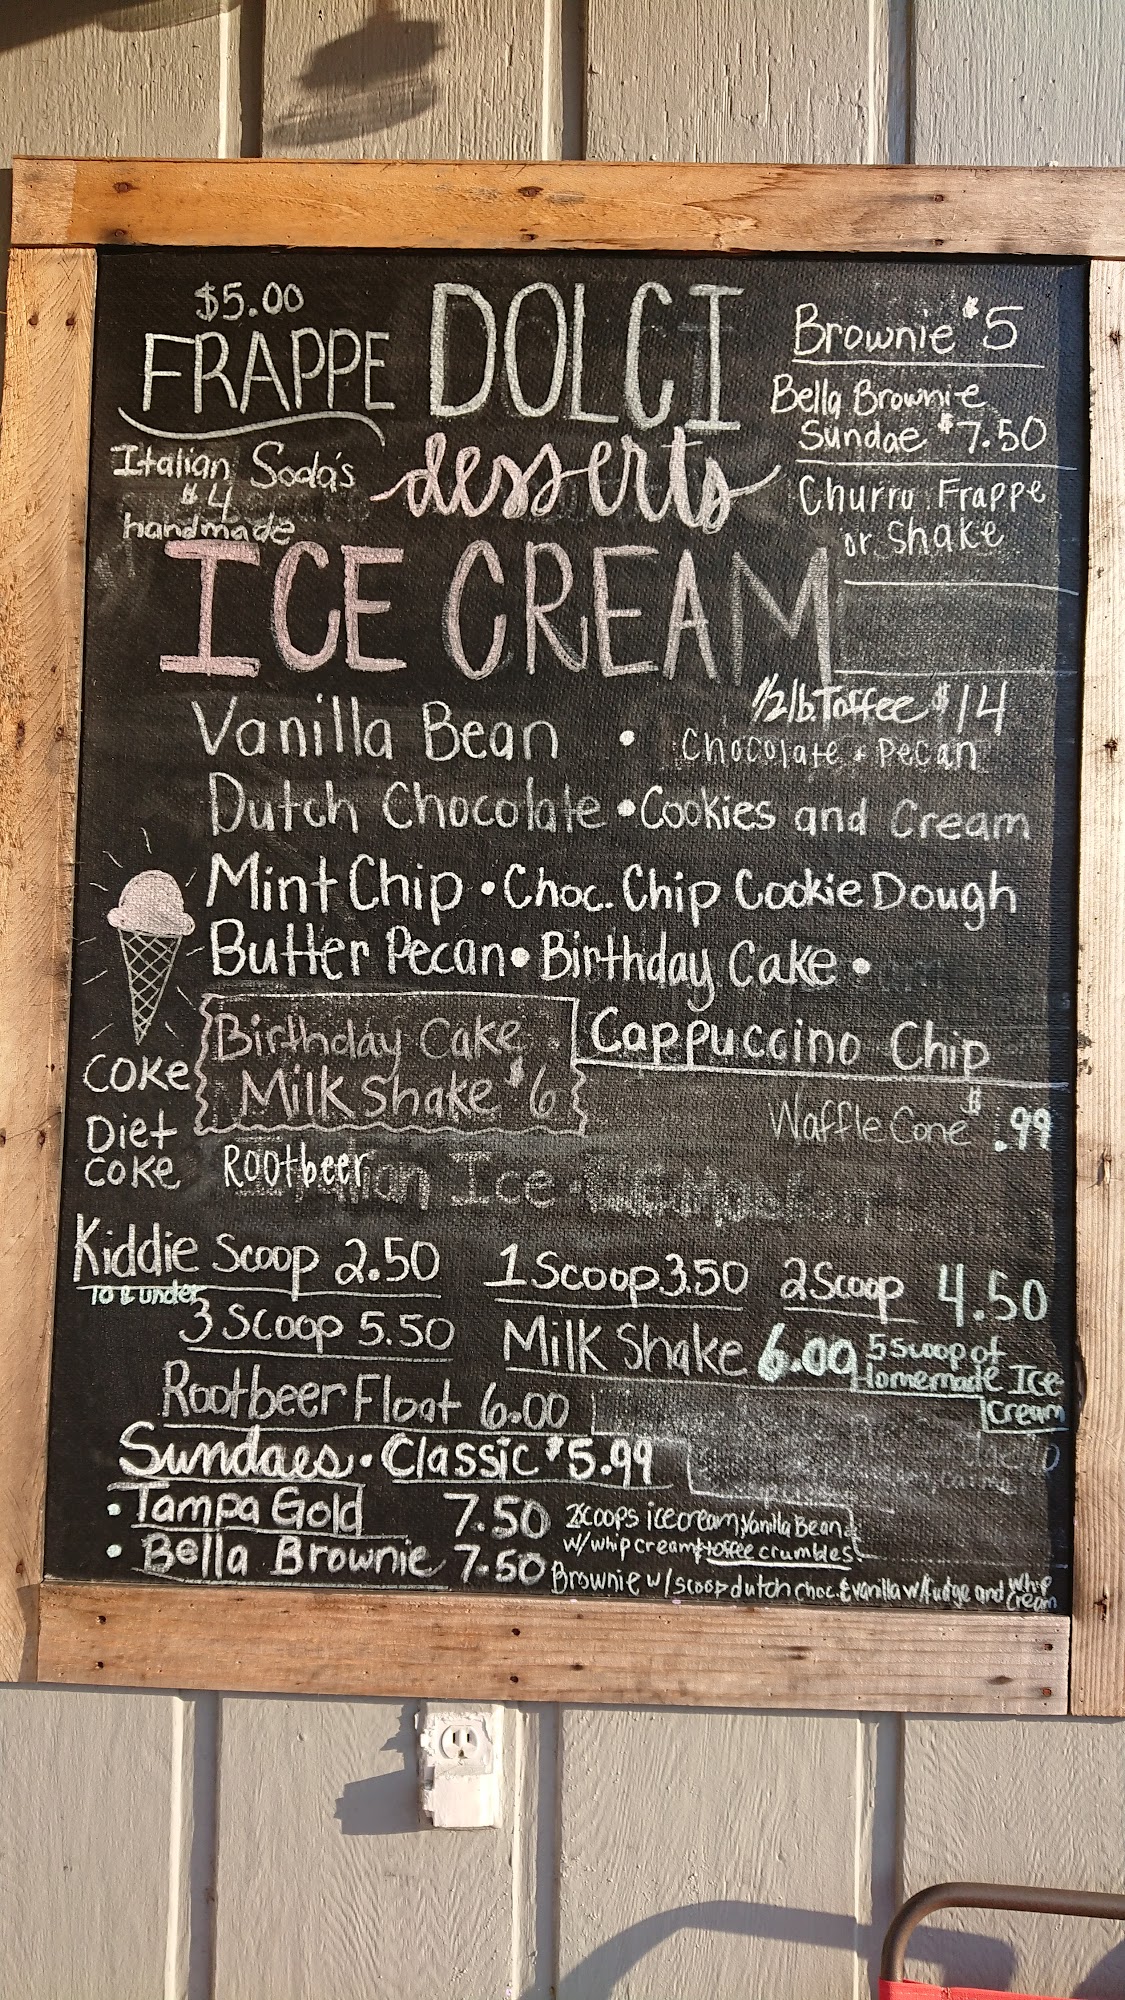 $5.00
FRAPPE
Italian Soda's
$4
handmade
DOLCI
desserts
Brownie $5
Bella Brownie
Sundae $7.50
Churro Frappe
or Shake
ICE CREAM
1/2 lb. Toffee $14
Chocolate & Pecan
Vanilla Bean •
Dutch Chocolate • Cookies and Cream
Mint Chip • Choc. Chip Cookie Dough
Butter Pecan • Birthday Cake •
Cappuccino Chip
Birthday Cake
Milk Shake $6
Waffle Cone $.99
Coke
Diet
Coke
Rootbeer
Ice
Kiddie Scoop 2.50
10 & under
1 Scoop 3.50
2 Scoop 4.50
3 Scoop 5.50
Milk Shake 6.00
5 Scoop of
Homemade Ice
Cream
Rootbeer Float 6.00
Sundaes • Classic $5.99
• Tampa Gold 7.50
2scoops icecream, Vanilla Bean
w/whip cream & toffee crumbles
• Bella Brownie 7.50
Brownie w/scoop dutch choc. & vanilla w/fudge and whip
cream